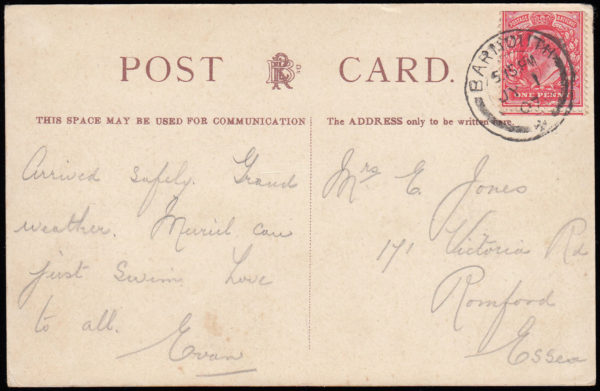 POST CARD.
BARMOUTH
5 15 PM
ONE PENNY
THIS SPACE MAY BE USED FOR COMMUNICATION
The ADDRESS only to be written here.
Arrived safely. Grand
weather. Muriel can
just swim. Love
to all.
Evan
Mrs E. Jones
171 Victoria Rd
Romford
Essex